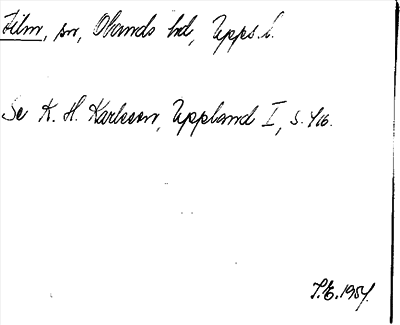 Film, sn, Olands hd, Upps. l.
Se K. H. Karlsson, Uppland I, s. 416.
S.E. 1954.